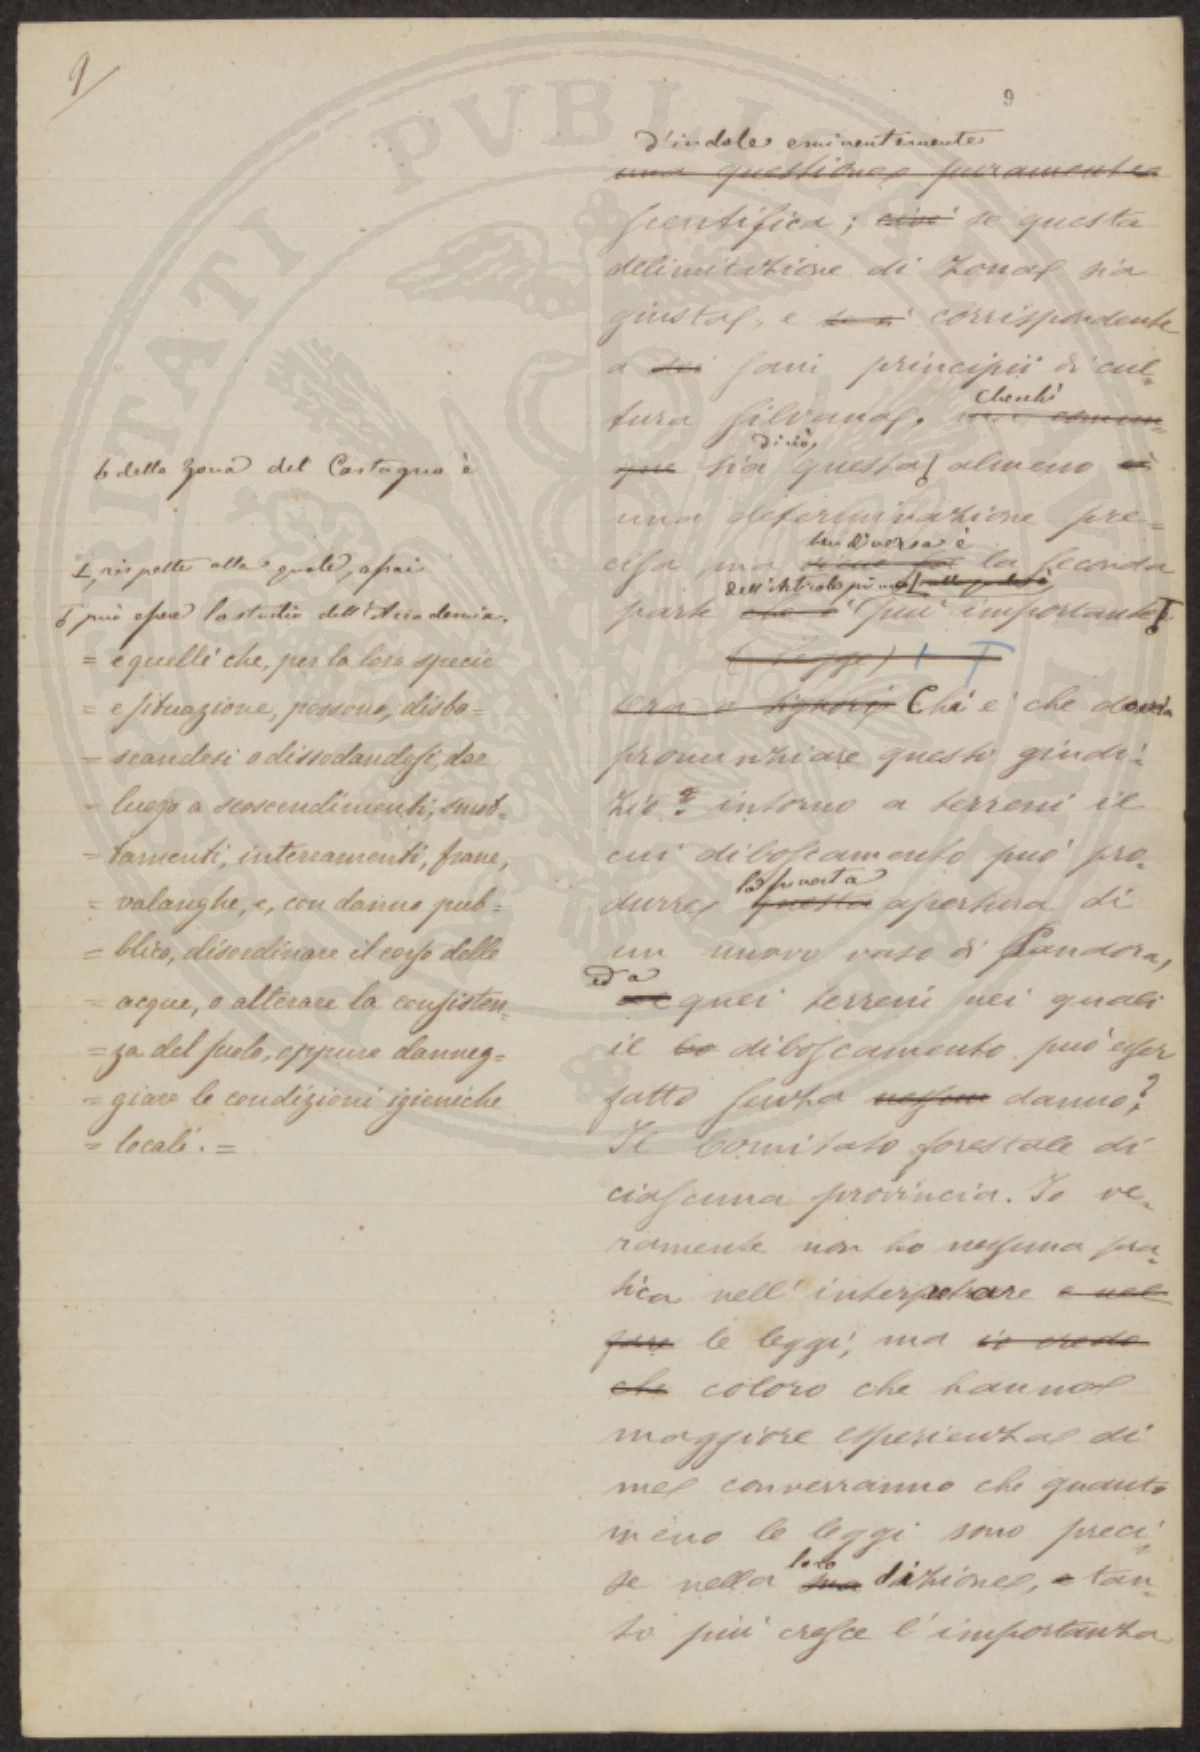 9
9
d'indole eminentemente
una questione puramente
scentifica; cioè se questa
delimitazione di zona sia
giusta, e se è corrispondente
a dei sani principii di cul-
tura silvana. ma comun-
Chechè
que sia questa almeno è
di ciò,
una determinazione pre-
cisa, ma la seconda
ben diversa è
parte che è più importante
dell'Articolo primo
(Legge)
Ora o Signori Chi è che dovrà
pronunziare questo giudi-
zio intorno a terreni il
cui diboscamento può pro-
durre questa apertura di
la funesta
un nuovo vaso di Pandora,
ed a
quei terreni nei quali
il bo diboscamento può esser
fatto senza nessun danno?
Il Comitato forestale di
ciascuna provincia. Io ve-
ramente non ho nessuna pra-
tica nell'interpetrare e nel
fare le leggi; ma io credo
che coloro che hanno
maggiore esperienza di
me converranno che quanto
meno le leggi sono preci-
se nella sua dizione, e tan-
loro
to più cresce l'importanza
della zona del Castagno è
I, rispetto alla quale, assai
può essere lo studio dell'Accademia.
= e quelli che, per la loro specie
= e situazione, possono, disbo-
= scandosi o dissodandosi, dar
= luogo a scoscendimenti, smot-
= tamenti, interramenti, frane,
= valanghe, e, con danno pub-
= blico, disordinare il corso delle
= acque, o alterare la consisten-
= za del suolo, oppure danneg-
= giare le condizioni igieniche
= locali. =
PVBLICAE